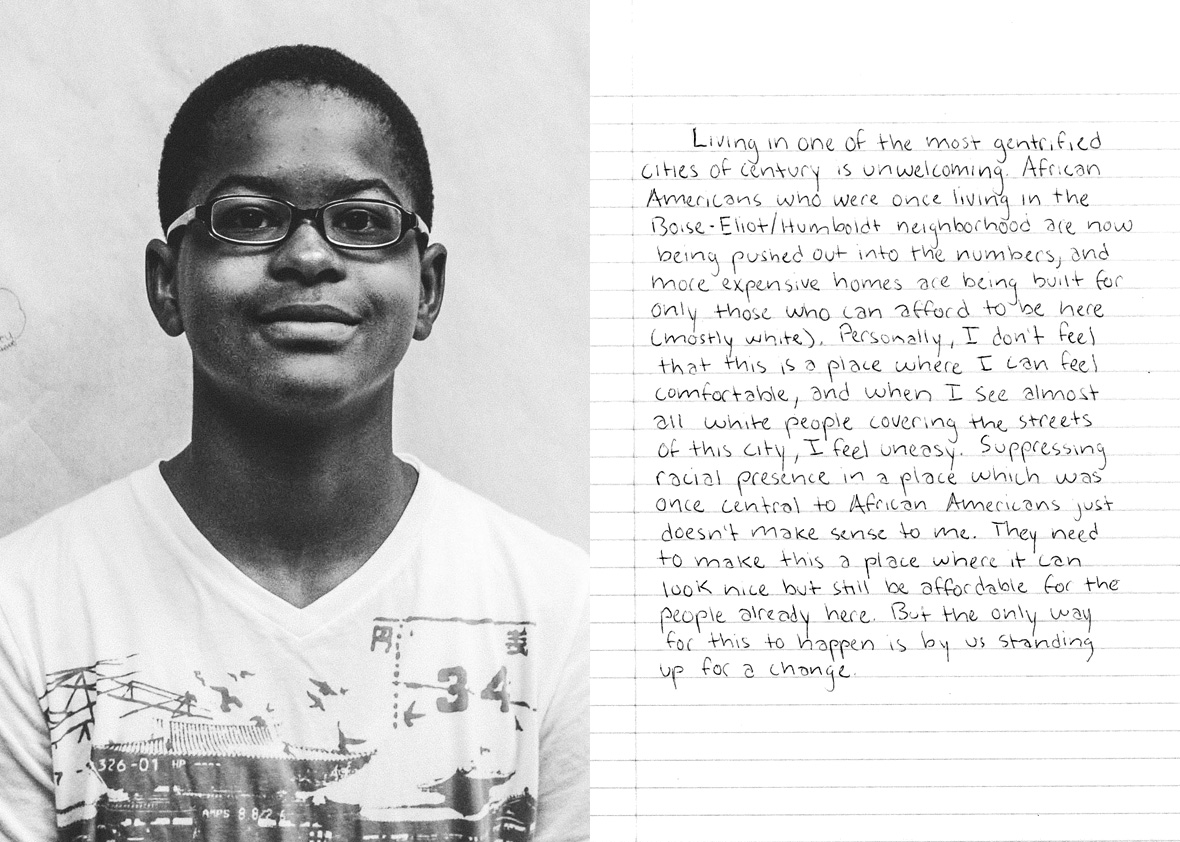 円
表
34
326-01 HP ----
7
AMPS 8.8/2.6
Living in one of the most gentrified
cities of century is unwelcoming. African
Americans who were once living in the
Boise-Eliot/Humboldt neighborhood are now
being pushed out into the numbers, and
more expensive homes are being built for
only those who can afford to be here
(mostly white). Personally, I don't feel
that this is a place where I can feel
comfortable, and when I see almost
all white people covering the streets
of this city, I feel uneasy. Suppressing
racial presence in a place which was
once central to African Americans just
doesn't make sense to me. They need
to make this a place where it can
look nice but still be affordable for the
people already here. But the only way
for this to happen is by us standing
up for a change.